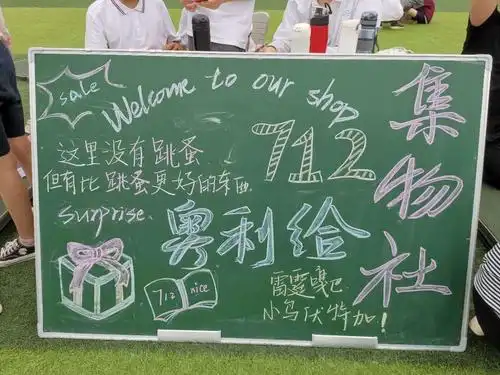 sale
Welcome to our shop
712
集物社
这里没有跳蚤
但有比跳蚤更好的东西.
surprise.
奥利给
712 nice
雷霆嘎巴
小乌伏特加!